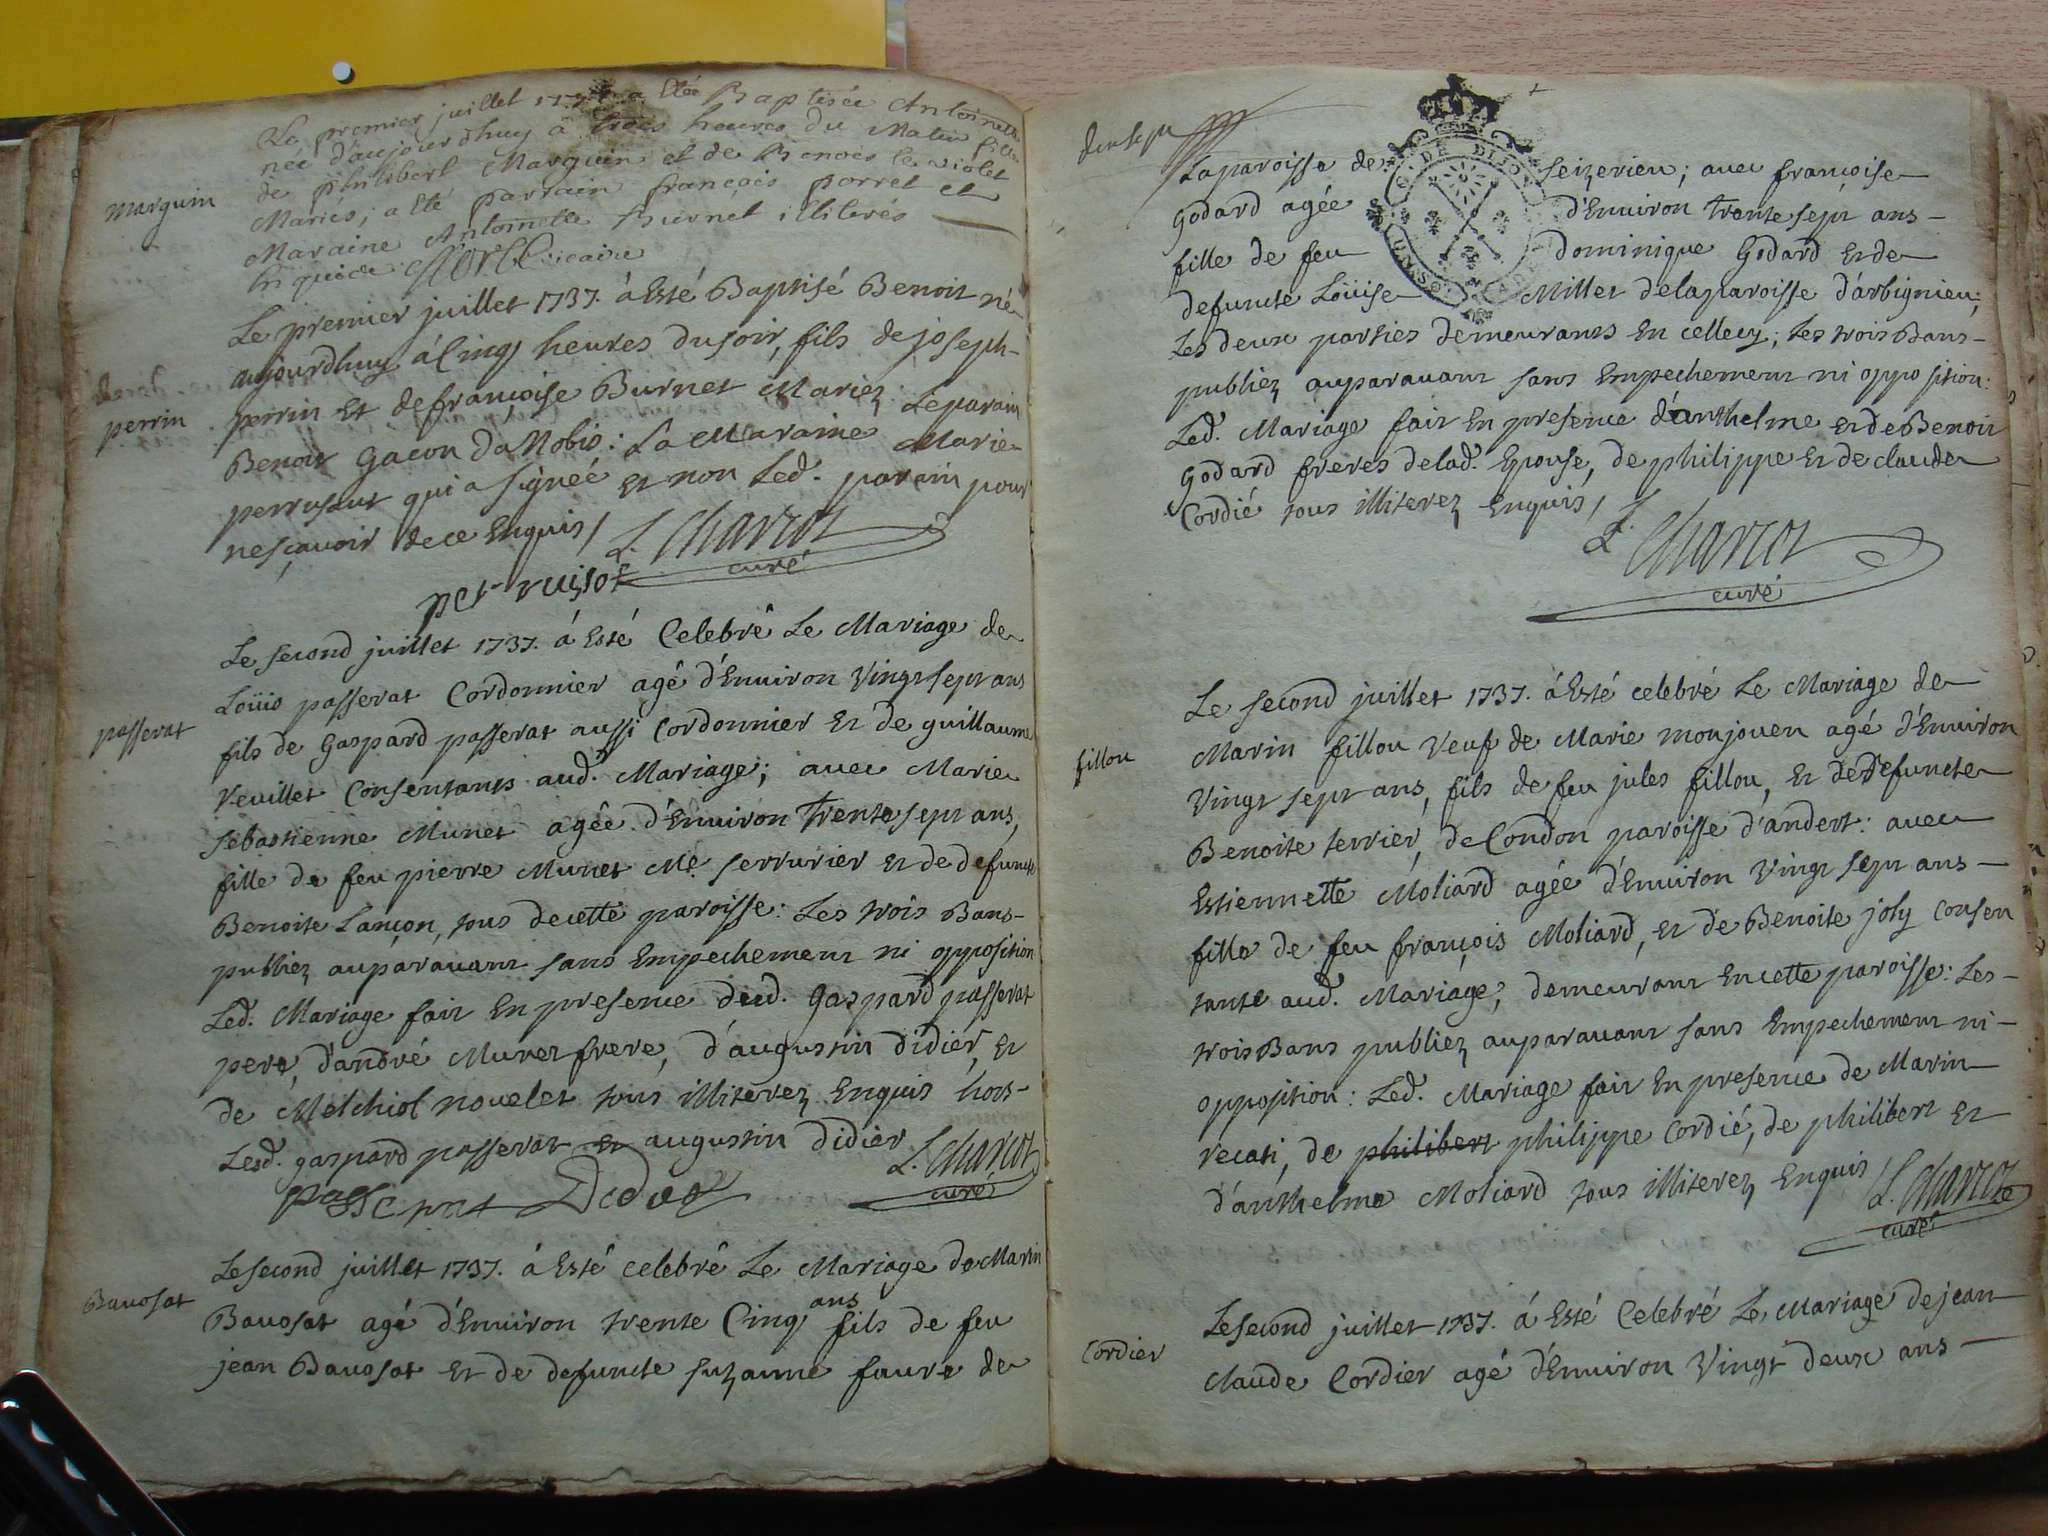 Le premier juillet 1737 a été Baptisée Antoinette
née d'aujourdhuy a trois heures du Matin fille
marguin
de philibert Marguin et de Benoite violet
Mariés; a eté parrain françois porret et
Maraine Antoinette Burnet illiterés
Enquis vicaire
Le premier juillet 1737. á Esté Baptisé Benoit né
aujourdhuy á Cinq heures du soir, fils de joseph
perrin
perrin Et de françoise Burnet Mariez: Le parain
Benoit Gacon Da Nobis: La Maraine Marie
perrusset qui a signée Et non Led. parain pour
ne sçavoir de ce Enquis /
L. Charcot
curé
perruisot
Le second juillet 1737. á Esté Celebré Le Mariage de
Loüis passerat Cordonnier agé d'Environ Vingt sept ans
passerat
fils de Gaspard passerat aussi Cordonnier Et de guillaume
Veuillet Consentants aud. Mariage; avec Marie
sébastienne Munet agée d'Environ Trente sept ans,
fille de feu pierre Munet Me. serrurier et de defuncte
Benoite Lançon, tous de cette paroisse: Les trois Bans
publiez auparavant sans Empechement ni opposition
Led. Mariage fait En presence dud. gaspard passerat
pere, d'andré Munet frere, d'augustin didier, et
de Melchiol nouelet tous illiterez Enquis hors
Lesd. gaspard passerat et augustin Didier
L. Charcot
curé
passerat Didier
Le second juillet 1737. á Esté celebré Le Mariage de Marin
Bavosat
Bavosat agé d'Environ trente Cinq ans fils de feu
jean Bavosat Et de defuncte suzanne faure de
La paroisse de seizerieu; avec françoise
Godard agée d'Environ Trente sept ans
fille de feu Dominique Godard et de
defuncte Loüise Millet de la paroisse d'arbignieu;
Les deux parties demeurants En cellecy; Les trois Bans
publiez auparavant sans Empechement ni opposition:
Led. Mariage fait En presence d'anthelme et de Benoit
Godard freres de lad. Epouse, de philippe Et de claude
Cordié tous illiterez Enquis /
L. Charcot
curé
Le second juillet 1737. á Esté celebré Le Mariage de
fillou
Marin fillou Veuf de Marie monjouen agé d'Environ
Vingt sept ans, fils de feu jules fillou, et de defuncte
Benoite terrier, de Condon paroisse d'andert: avec
Estiennette Moliard agée d'Environ Vingt sept ans
fille de feu françois Moliard, et de Benoite joly Consen
tante aud. Mariage; demeurant En cette paroisse: Les
trois Bans publiez auparavant sans Empechement ni
opposition: Led. Mariage fait En presence de Marin
recati, de philibert philippe Cordié, de philibert Et
d'anthelme Moliard tous illiterez Enquis /
L. Charcot
curé
Le second juillet 1737. á Esté Celebré Le Mariage de jean
Cordier
claude Cordier agé d'Environ Vingt deux ans